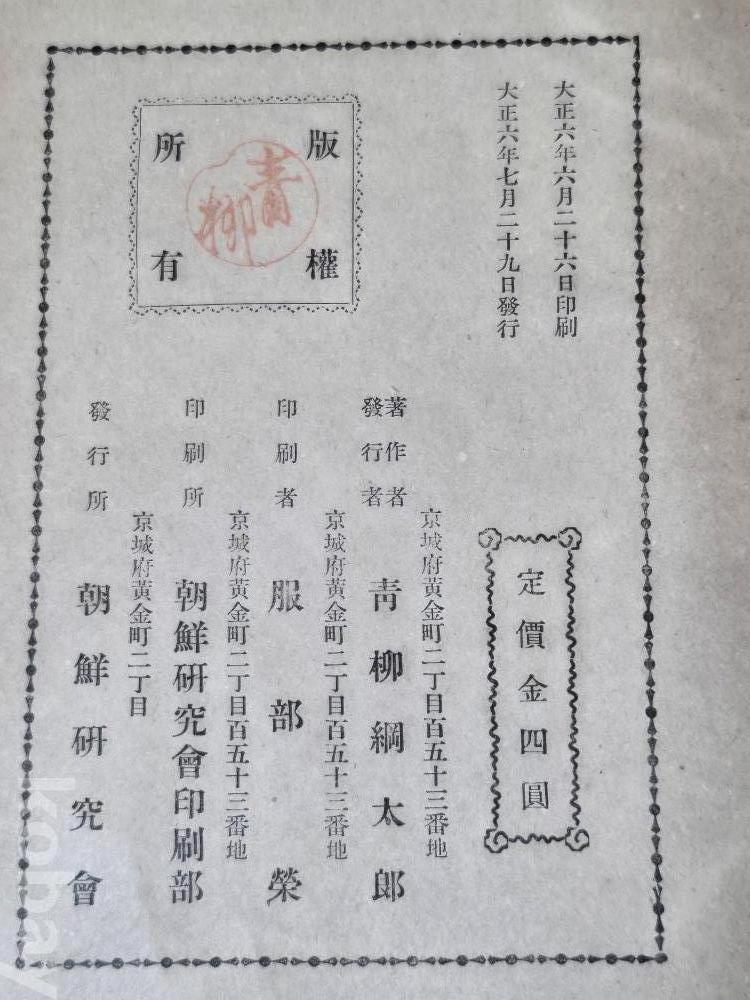 大正六年六月二十六日印刷
大正六年七月二十九日發行
版權
所有
青柳
定價金四圓
京城府黃金町二丁目百五十三番地
著作者
發行者
靑柳綱太郎
京城府黃金町二丁目百五十三番地
印刷者
服部榮
京城府黃金町二丁目百五十三番地
印刷所
朝鮮研究會印刷部
京城府黃金町二丁目
發行所
朝鮮研究會
kobay